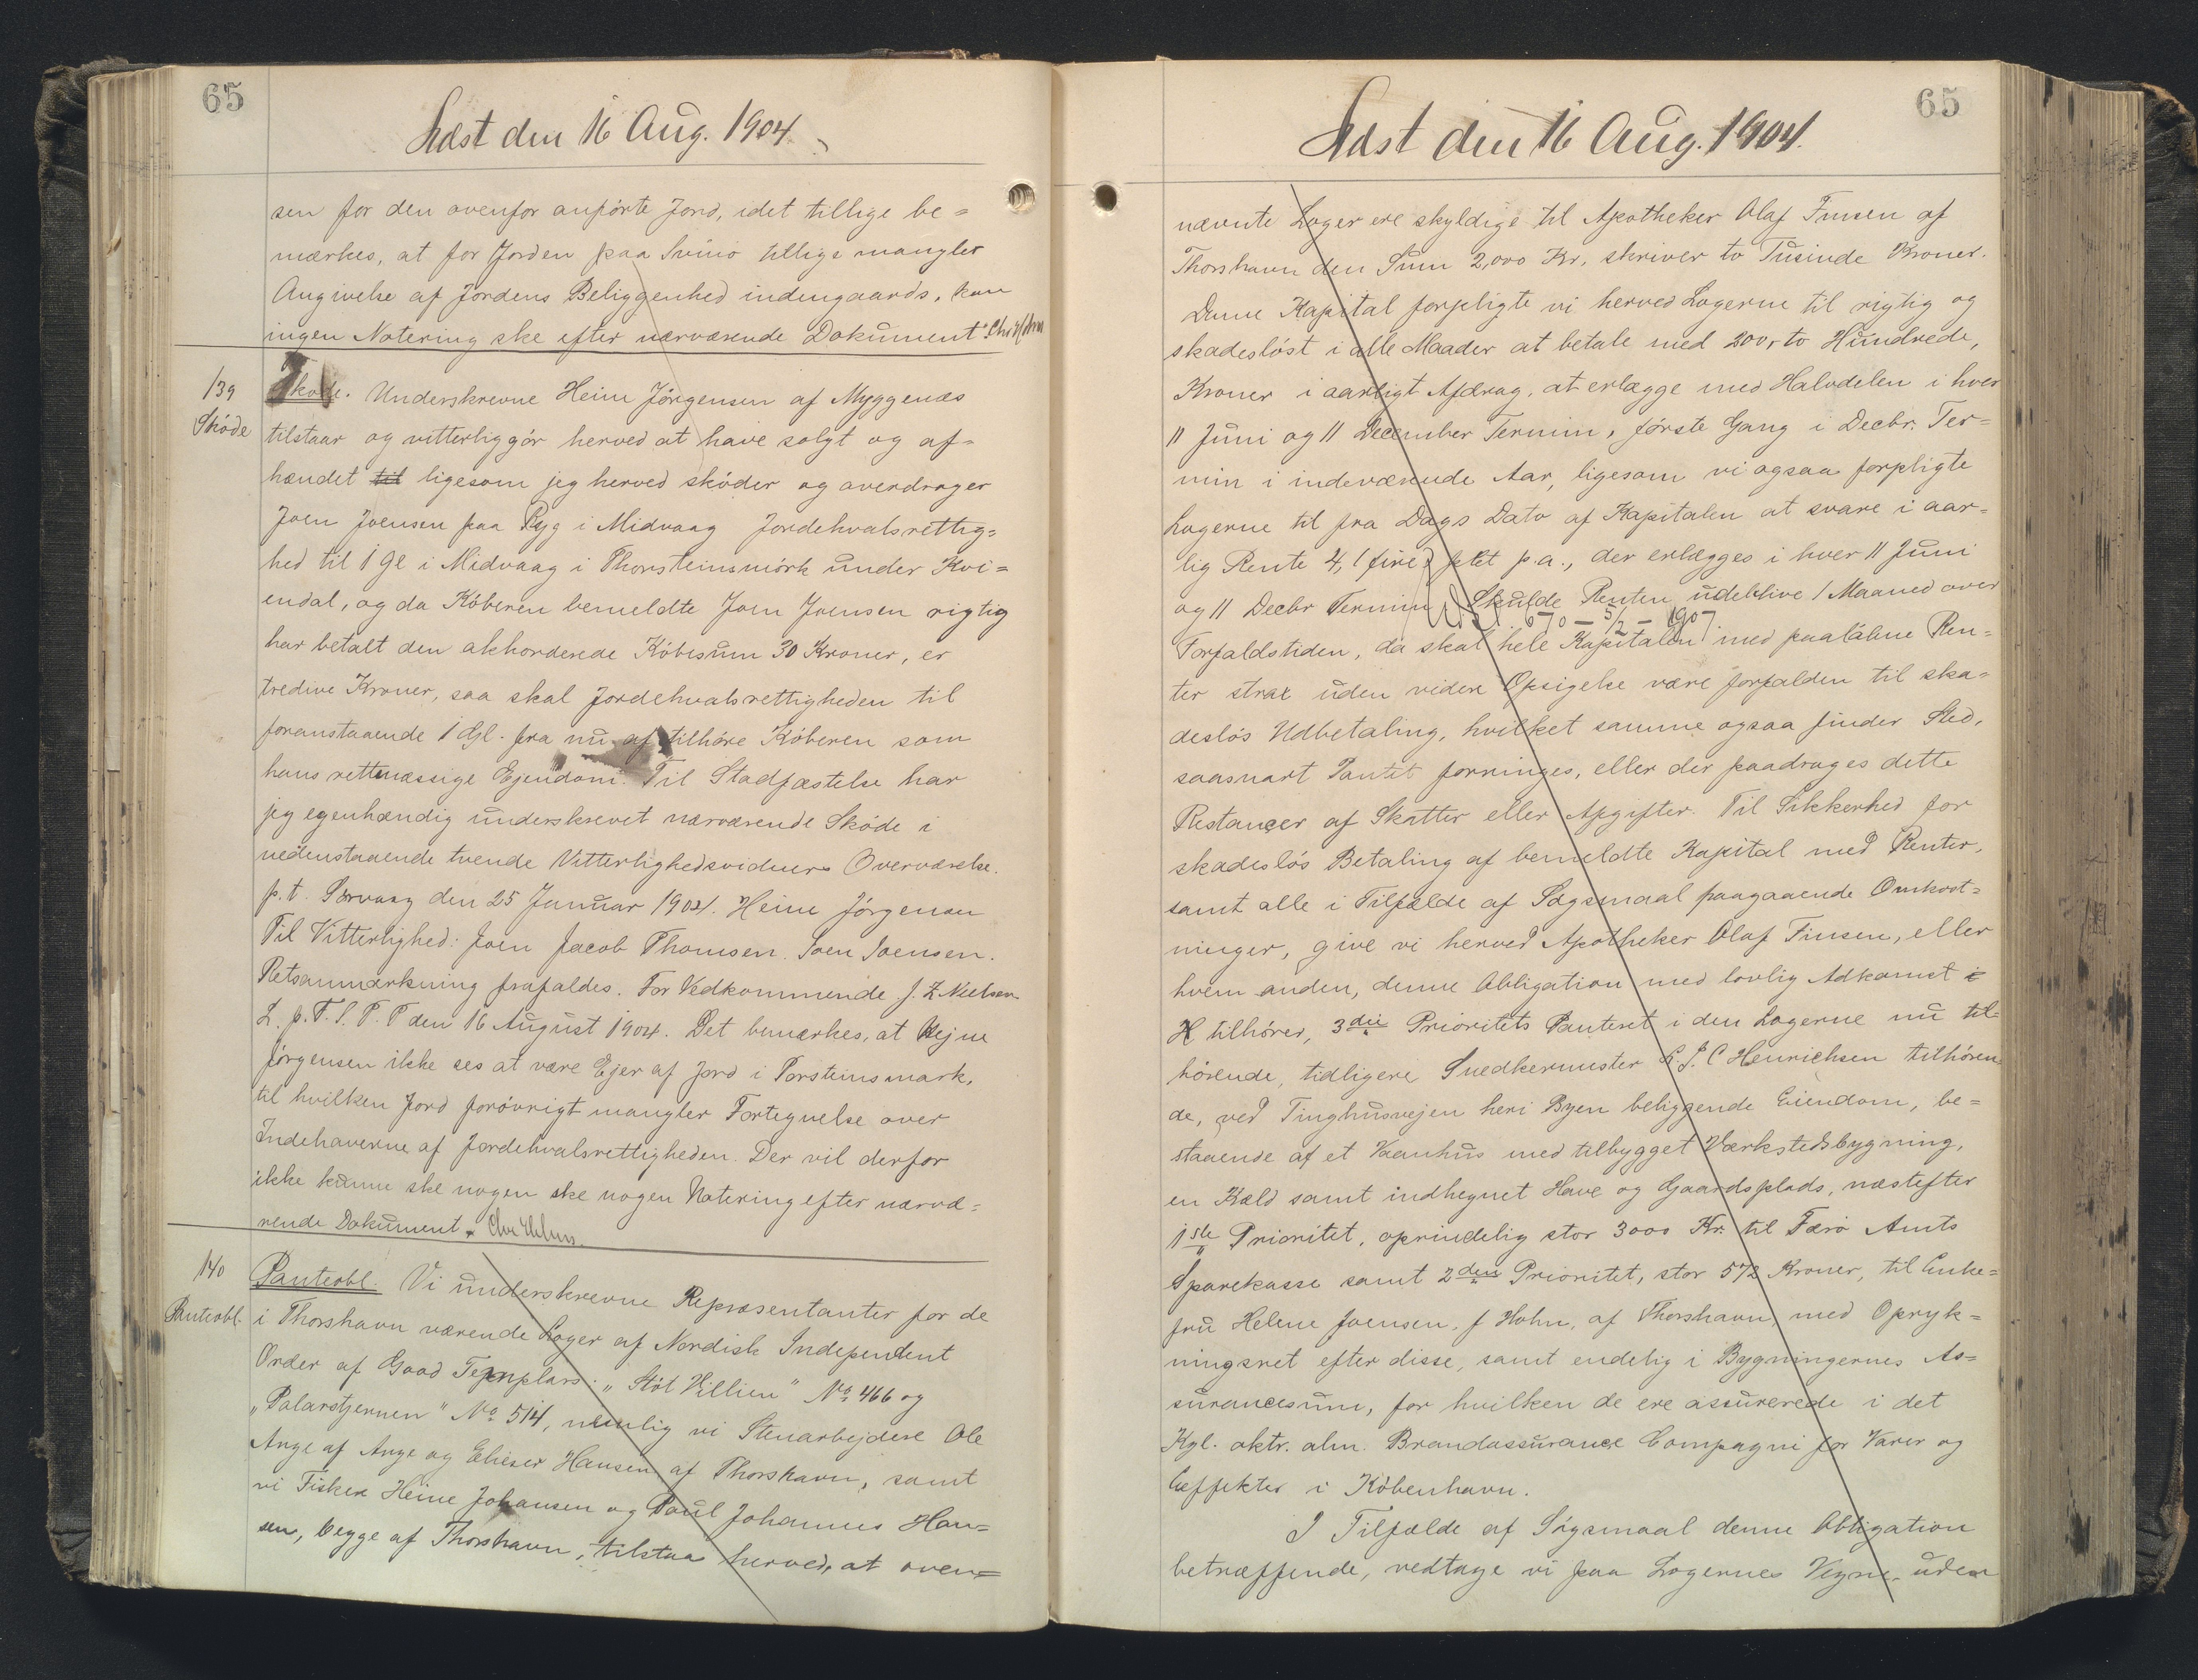 65
Læst den 16 Aug. 1904.
sen for den ovenfor anførte Jord, idet tillige be=
mærkes, at for Jorden paa Svinø tillige mangler
Angivelse af Jordens Beliggenhed indengaards, kan
ingen Notering ske efter nærværende Dokument.
139
Skøde
Skøde. Underskrevne Heine Jørgensen af Myggenæs
tilstaar og vitterliggør herved at have solgt og af=
hændet til ligesom jeg herved skøder og overdrager
Joen Joensen paa Ryg i Midvaag Jordehvalsrettig=
hed til 1 Gl i Midvaag i Thorsteinsmørk under Kvi=
endal, og da Køberen bemeldte Joen Joensen rigtig
har betalt den akkorderede Købesum 30 Kroner, er
tredive Kroner, saa skal Jordehvalsrettigheden til
foranstaaende 1 Gl. fra nu af tilhøre Køberen som
hans retmæssige Ejendom. Til Stadfæstelse har
jeg egenhændig underskrevet nærværende Skøde i
nedenstaaende tvende Vitterlighedsvidners Overværelse.
p.t. Sørvaag den 25 Januar 1904. Heine Jørgensen
Til Vitterlighed: Joen Jacob Thomsen. Joen Joensen.
Retsanmærkning frafaldes. For Vedkommende J. Z. Nielsen.
L. p. F. S. P. T den 16 August 1904. Det bemærkes, at Hejne
Jørgensen ikke ses at være Ejer af Jord i Torsteinsmark,
til hvilken Jord forøvrigt mangler Fortegnelse over
Indehaverne af Jordehvalsrettigheden. Der vil derfor
ikke kunne ske nogen ske nogen Notering efter nærvæ=
rende Dokument.
140
Panteobl.
Panteobl. Vi underskrevne Repræsentanter for de
i Thorshavn værende Loger af Nordisk Independent
Order af Good Templars: „Støt Villien" No 466 og
„Polarstjernen" No 514, nemlig vi Stenarbejdere Ole
Ange af Ange og Elieser Hansen af Thorshavn, samt
vi Fisker Heine Johansen og Poul Johannes Han=
sen, begge af Thorshavn, tilstaa herved, at oven=
65
Læst den 16 Aug. 1904.
nævnte Loger ere skyldige til Apotheker Olaf Finsen af
Thorshavn den Sum 2,000 Kr, skriver to Tusinde Kroner.
Denne Kapital forpligte vi herved Logerne til rigtig og
skadesløst i alle Maader at betale med 200, to Hundrede,
Kroner i aarligt Afdrag, at erlægge med Halvdelen i hver
11 Juni og 11 December Termin, første Gang i Decbr. Ter=
min i indeværende Aar, ligesom vi ogsaa forpligte
Logerne til fra Dags Dato af Kapitalen at svare i aar=
lig Rente 4, (fire) pCt p.a., der erlægges i hver 11 Juni
og 11 Decbr Termin. Skulde Renten udeblive 1 Maaned over
Udsl. 670 – 5/2 – 1907.
Forfaldstiden, da skal hele Kapitalen med paaløbne Ren=
ter strax uden videre Opsigelse være forfalden til ska=
desløs Udbetaling, hvilket samme ogsaa finder Sted,
saasnart Pantet forringes, eller der paadrages dette
Restancer af Skatter eller Afgifter. Til Sikkerhed for
skadesløs Betaling af bemeldte Kapital med Renter,
samt alle i Tilfælde af Søgsmaal paagaaende Omkost=
ninger, give vi herved Apotheker Olaf Finsen, eller
hvem anden, denne Obligation med lovlig Adkomst
tilhører, 3die Prioritets Panteret i den Logerne nu til=
hørende, tidligere Snedkermester Henrichsen tilhøren=
de, ved Tinghusvejen heri Byen beliggende Eiendom, be=
staaende af et Vaanhus med tilbygget Værkstedsbygning,
en Kæld samt indhegnet Have og Gaardsplads, næstefter
1ste Prioritet, oprindelig stor 3000 Kr. til Færø Amts
Sparekasse samt 2den Prioritet, stor 572 Kroner, til Enke=
fru Helene Joensen, f Hohn, af Thorshavn, med Opryk=
ningsret efter disse, samt endelig i Bygningernes As=
surancesum, for hvilken de ere assurerede i det
Kgl. oktr. alm. Brandassurance Compagni for Varer og
Effekter i København.
I Tilfælde af Søgsmaal denne Obligation
betræffende, vedtage vi paa Logernes Vegne, uden